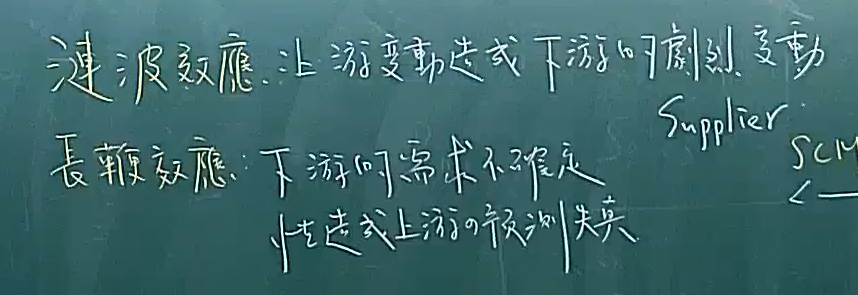 漣波效應:上游変動造成下游的劇烈変動
Supplier
長鞭效應:下游的需求不確定
性造成上游の預測失真
SCM